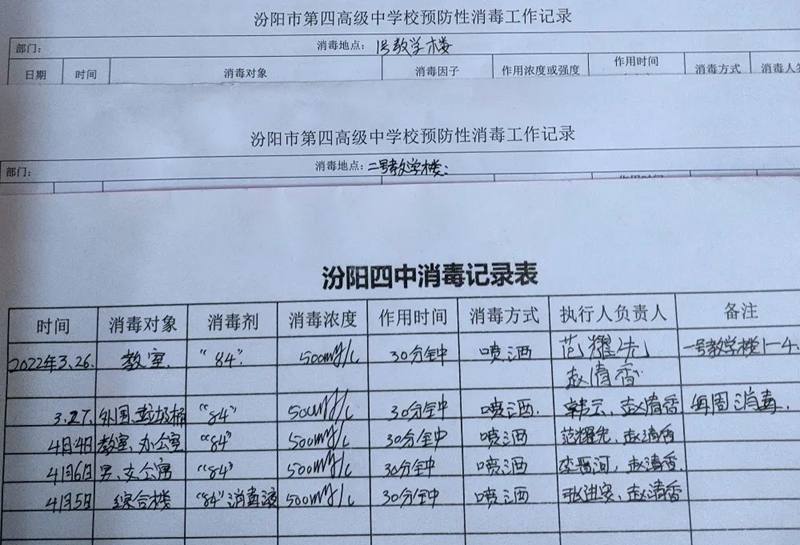 汾阳市第四高级中学校预防性消毒工作记录
部门: 消毒地点: 1号教学楼
日期 时间 消毒对象 消毒因子 作用浓度或强度 作用时间 消毒方式 消毒人
汾阳市第四高级中学校预防性消毒工作记录
部门: 消毒地点: 二号教学楼:
作用时间
汾阳四中消毒记录表
时间 消毒对象 消毒剂 消毒浓度 作用时间 消毒方式 执行人负责人 备注
2022年3.26. 教室. “84”. 500mg/L 30分钟 喷洒 范耀先 一号教学楼1-4.
赵清香
3.27. 外围.垃圾桶 “84” 500mg/L 30分钟 喷洒. 韩云、赵清香 每周消毒.
4月4日 教室、办公室 “84” 500mg/L 30分钟 喷洒 范耀先、赵清香
4月6日 男、女公寓 “84” 500mg/L 30分钟 喷洒 李晋河、赵清香
4月5日 综合楼 “84”消毒液 500mg/L 30分钟 喷洒 张进安、赵清香